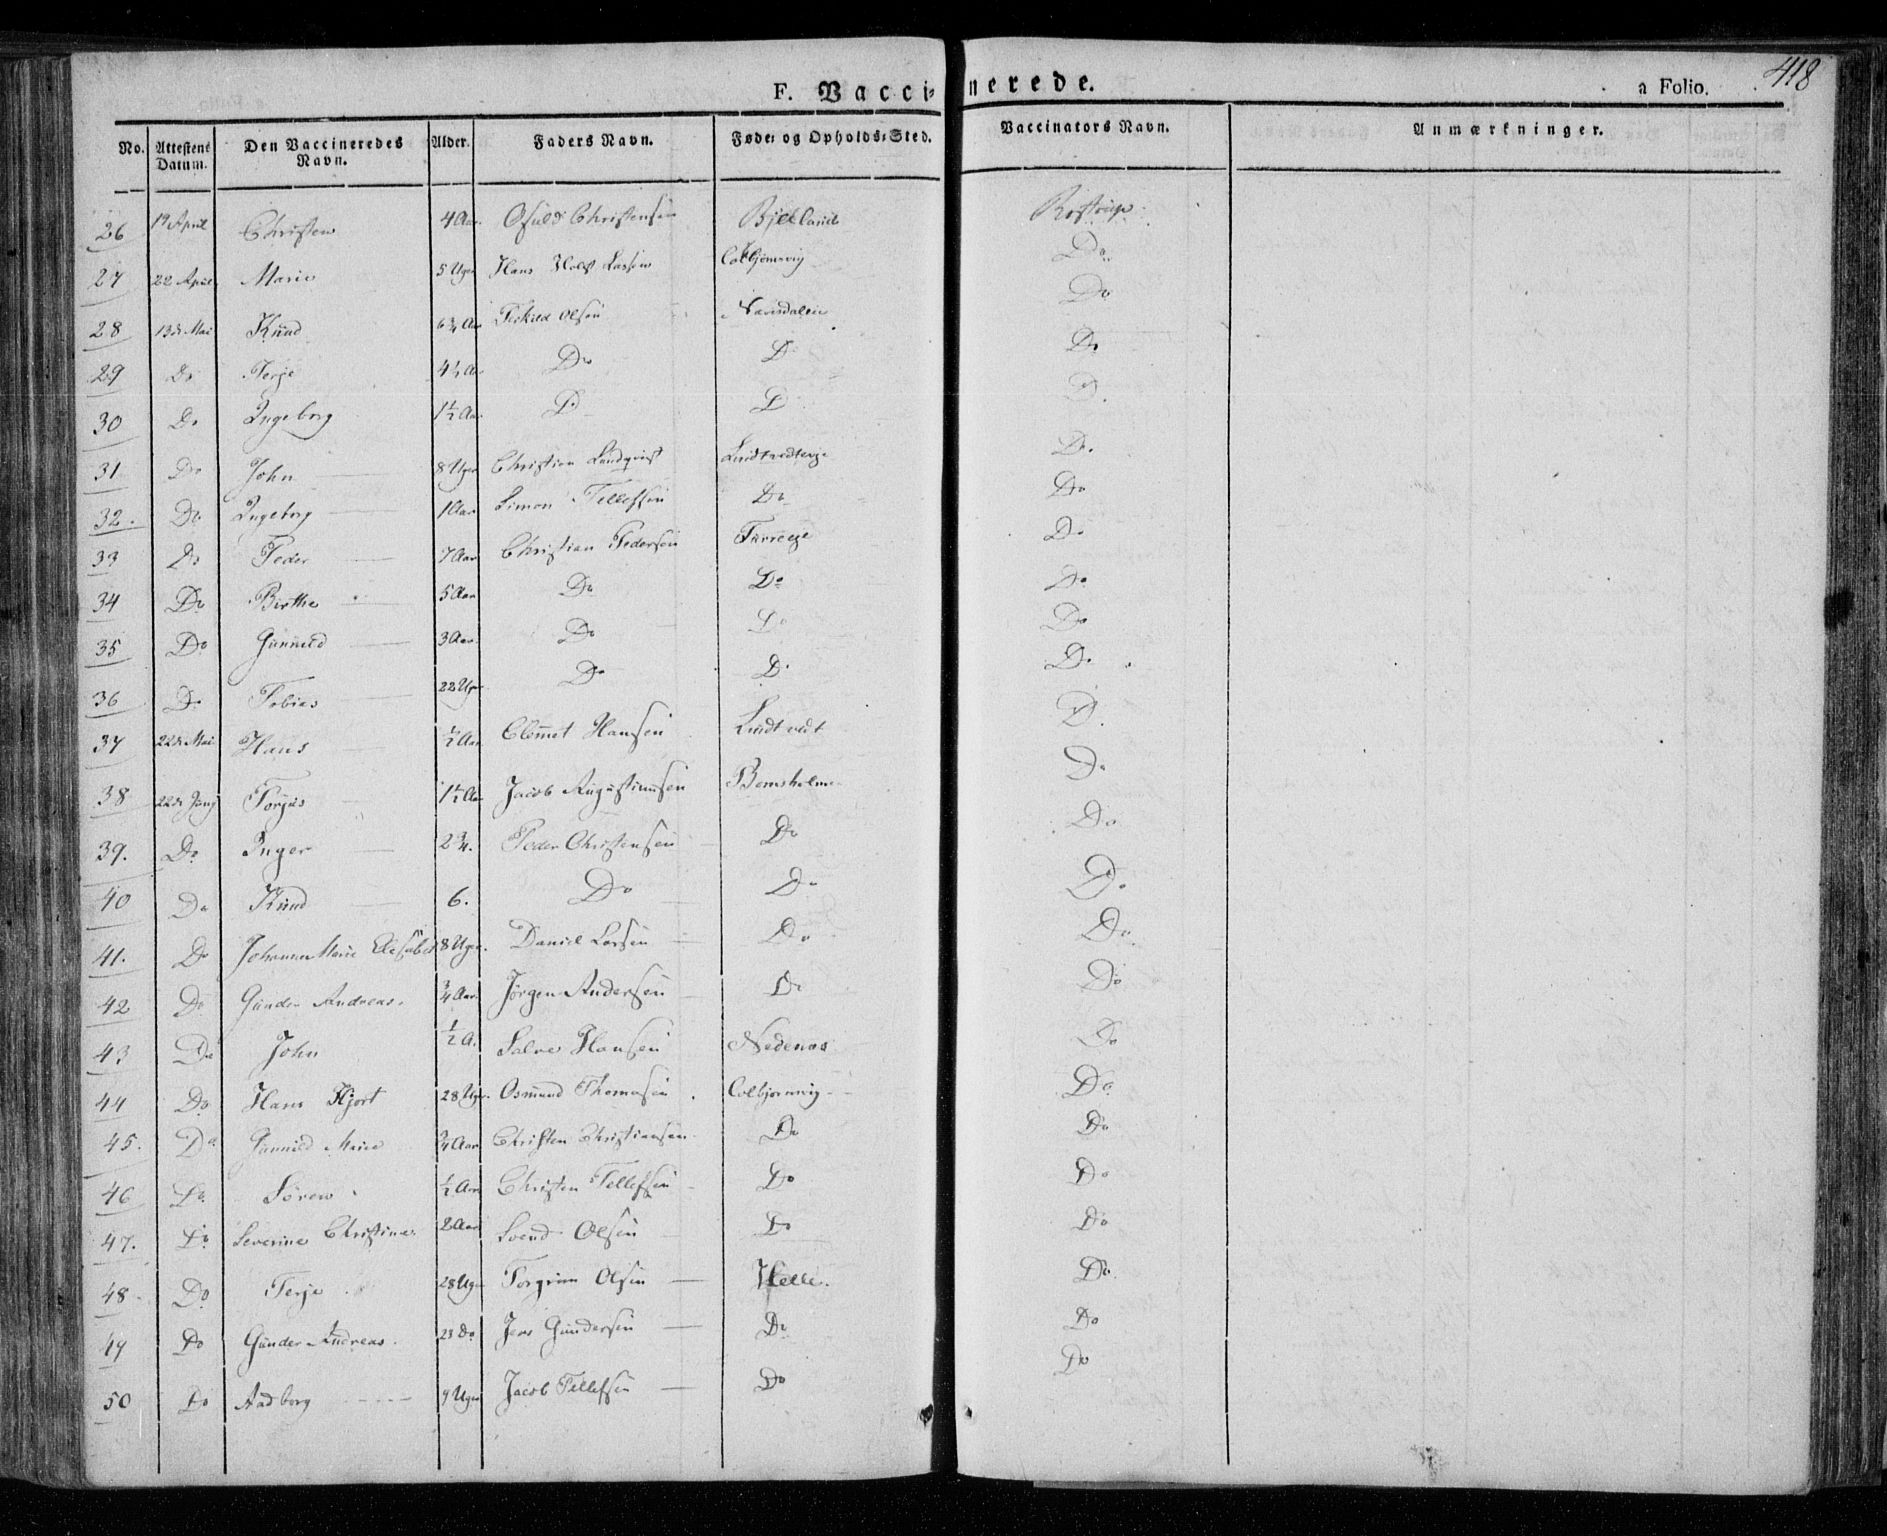 F. Vaccinerede.
a Folio. 418
No. Attestens Datum. Den Vaccineredes Navn. Alder. Faders Navn. Føde- og Opholds-Sted. Vaccinators Navn. Anmærkninger.
26 19 April Christen 4 Aar Osuld Christensen Bjelland Rostrup.
27 22 April Marie 5 Uger Hans Holst Larsen Colbjørnsvig Do
28 13de Mai Knud 6 3/4 Aar Olsen Do
29 Do Terje 4 1/2 Aar Do D Do
30 Do Ingeborg 1 1/2 Aar D D D.
31 Do John 8 Uger Christian Lundqvist Do.
32. Do Ingeborg 1 Aar Simon Tellefsen Do Do
33 Do Peder 7 Aar Christian Pedersen Do
34 Do Birthe 5 Aar Do Do Do
35 Do Gunnild 3 Aar Do Do Do
36 Do Tobias 22 Uger Do D. Do
37 22de Mai Hans 1/2 Aar Clemet Hansen Lindtvedt D.
38 22de Juny Torjus 1 1/2 Aar Jacob Augustinusen Bomsholmen Do
39. Do Inger 2 3/4. Peder Christensen Do Do
40 Do Knud 6. Do Do Do
41. Do Johanna Marie Elisabet 8 Uger. Daniel Larsen Do Do
42 Do Gunder Andreas. 3/4 Aar Jørgen Andersen Do Do
43 Do John 1/2 A. Salve Hansen Nedenæs Do
44 Do Hans Hjort 28 Uger. Osmund Thomesen Colbjørnsvig Do
45. Do Gunnild Marie 3/4 Aar Christen Christiansen Do Do
46 Do Søren 1/2 Aar Christen Tellefsen Do Do
47. Do Severine Christine. 2 Aar Svend Olsen Do Do
48 Do Terje 28 Uger Torgrim Olsen Helle. Do
49 Do Gunder Andreas. 23 Do Jens Gundersen Do Do
50 Do Aadborg 9 Uger Jacob Tellefsen Do Do